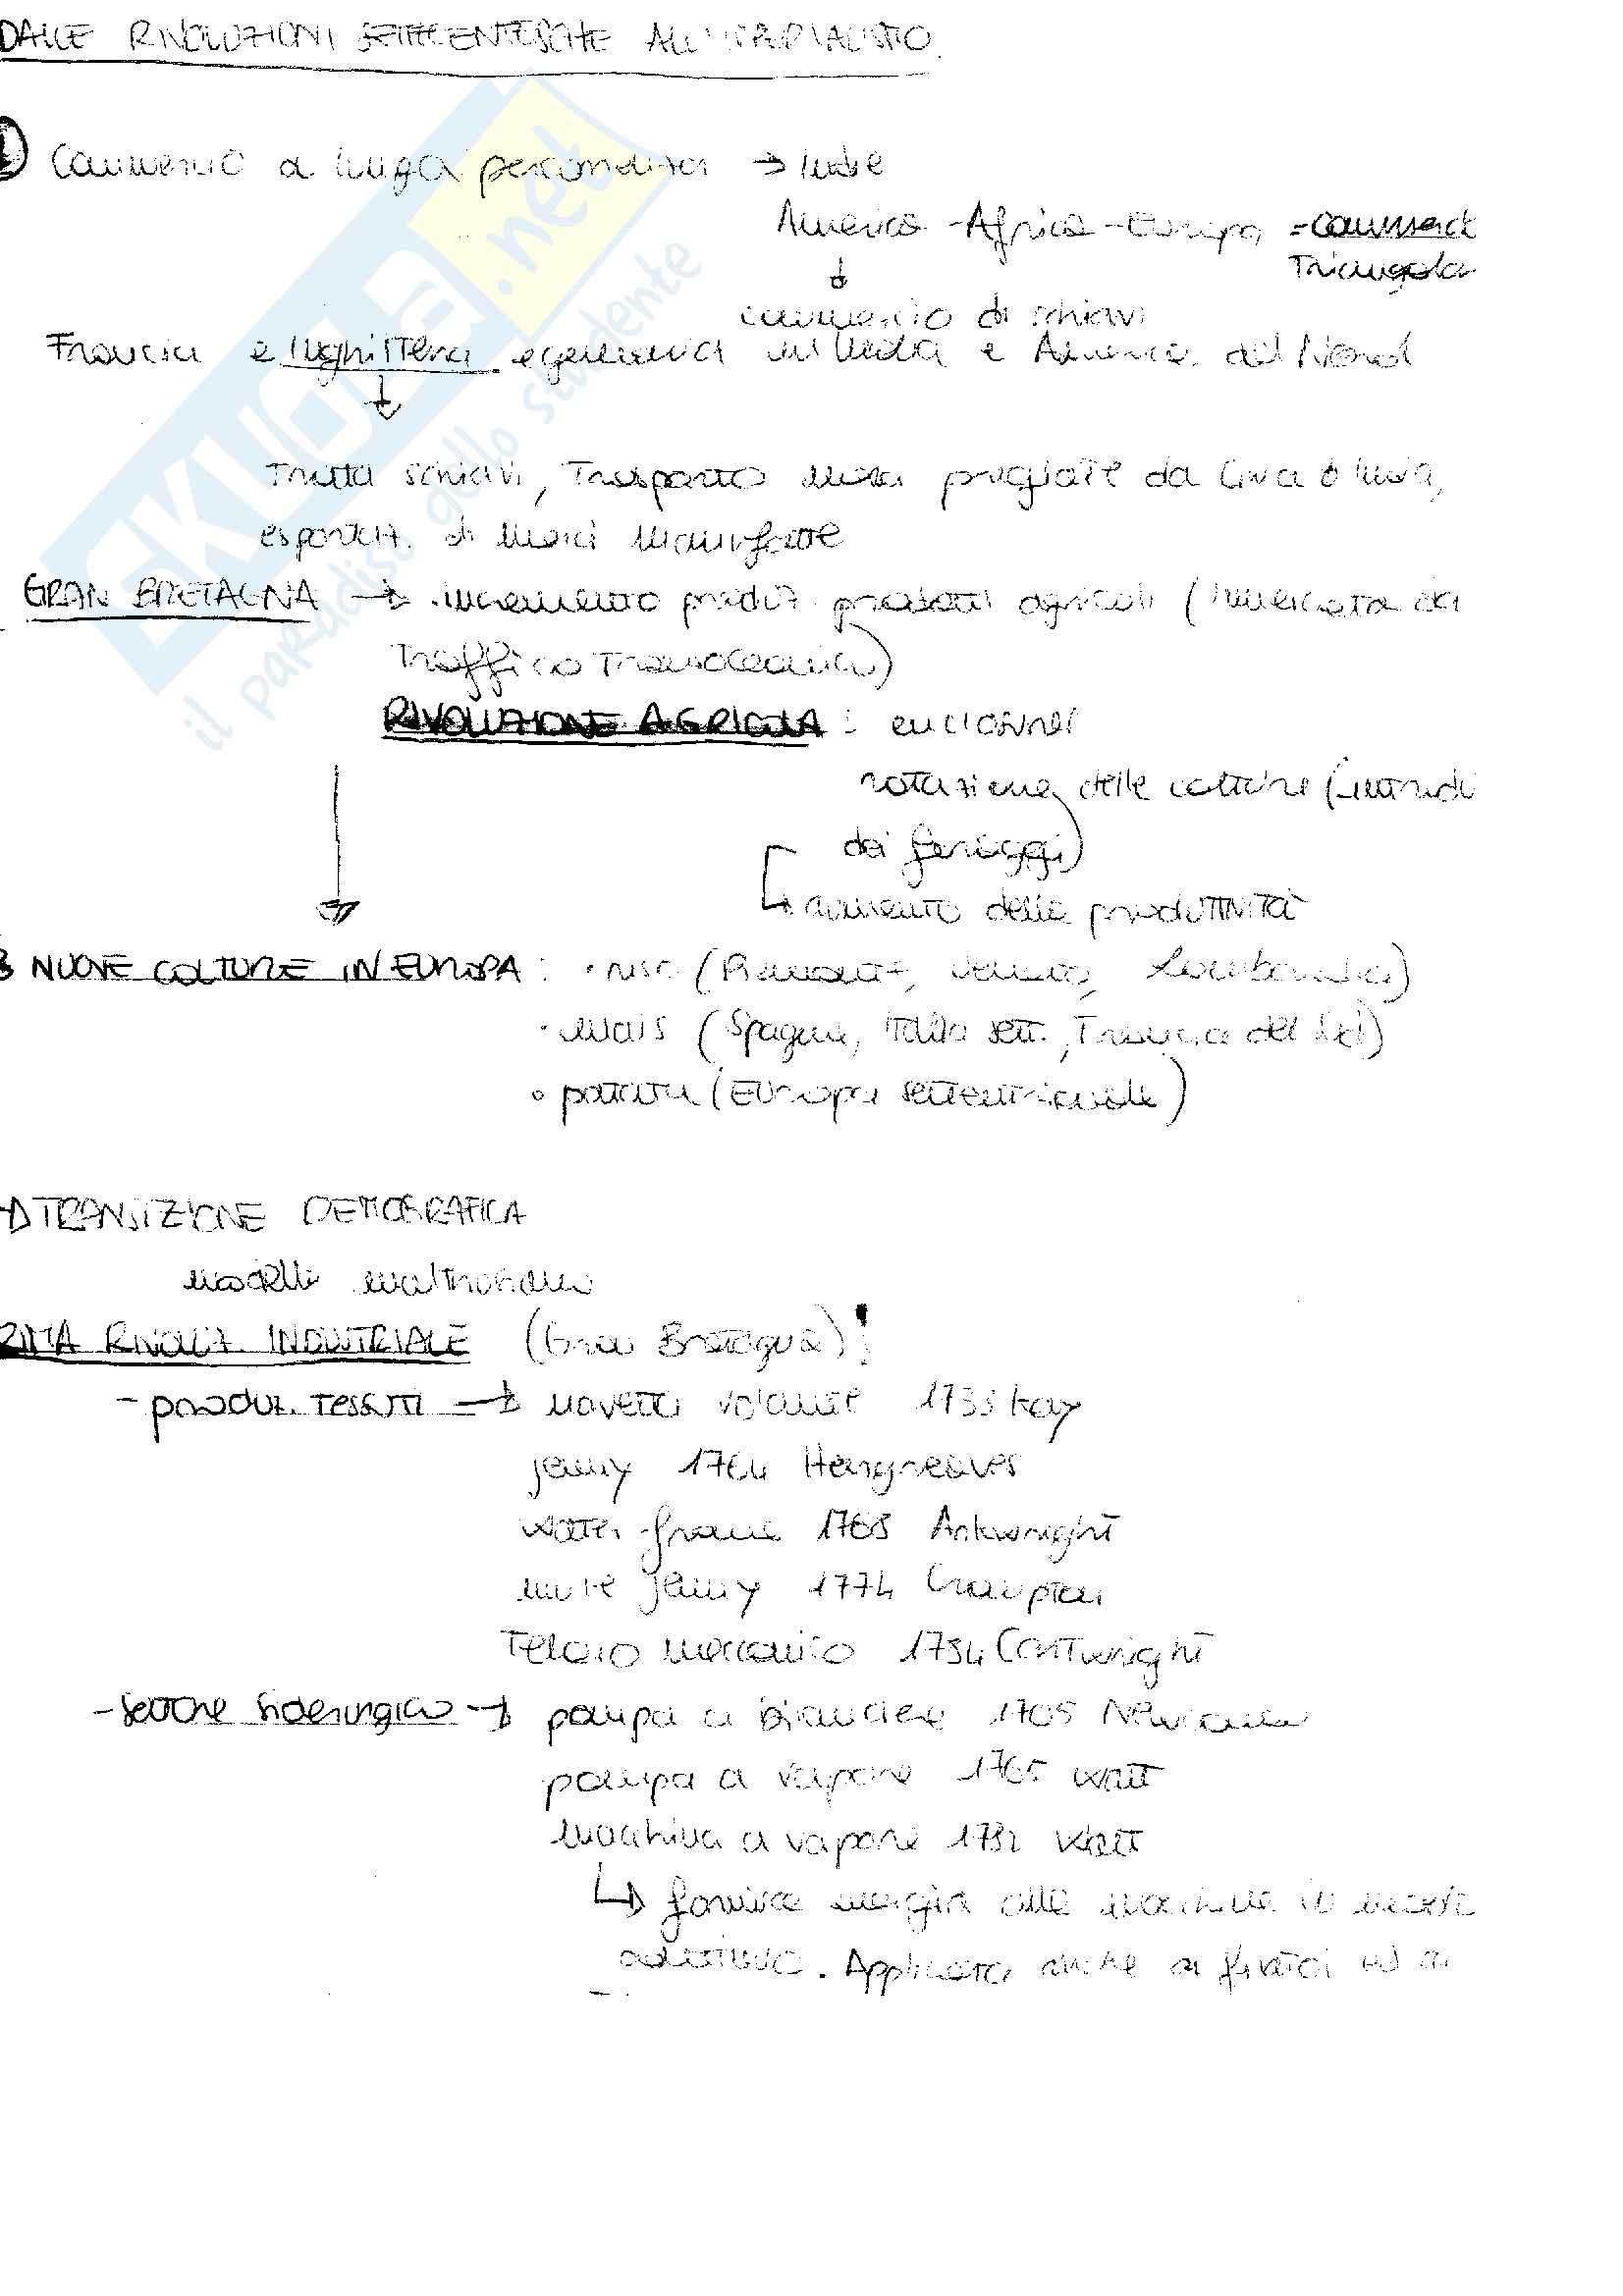 DALLE RIVOLUZIONI SETTECENTESCHE ALL'IMPERIALISMO
1 Commercio a lunga percorrenza → Indie
America - Africa - Europa = commerci
Triangola
↓
commercio di schiavi
Francia e Inghilterra egemonia in India e America del Nord
↓
Tratta schiavi, Trasporto merci pregiate da Cina o India,
esportaz. di merci manufatte
GRAN BRETAGNA → incremento produz. prodotti agricoli (
Traffico Transoceanico)
RIVOLUZIONE AGRICOLA: enclosures
rotazione delle colture (introdu
dei foraggi)
↳ aumento della produttività
NUOVE COLTURE IN EUROPA: • riso (Piemonte, Veneto, Lombardia)
• mais (Spagna, Italia sett., Francia del Sud)
• patata (Europa settentrionale)
→ TRANSIZIONE DEMOGRAFICA
modello malthusiano
RIMA RIVOLUZ. INDUSTRIALE (Gran Bretagna)!
- produz. tessuti → navetta volante 1733 Kay
jenny 1764 Hargreaves
water-frame 1768 Arkwright
mule jenny 1774 Crompton
Telaio meccanico 1784 Cartwright
- settore siderurgico → pompa a bilanciere 1705 Newcomen
pompa a vapore 1765 Watt
macchina a vapore 1782 Watt
↳ fornisce energia alle macchine in
. Applicata anche a
il paradiso dello studente
SKUOLA.net